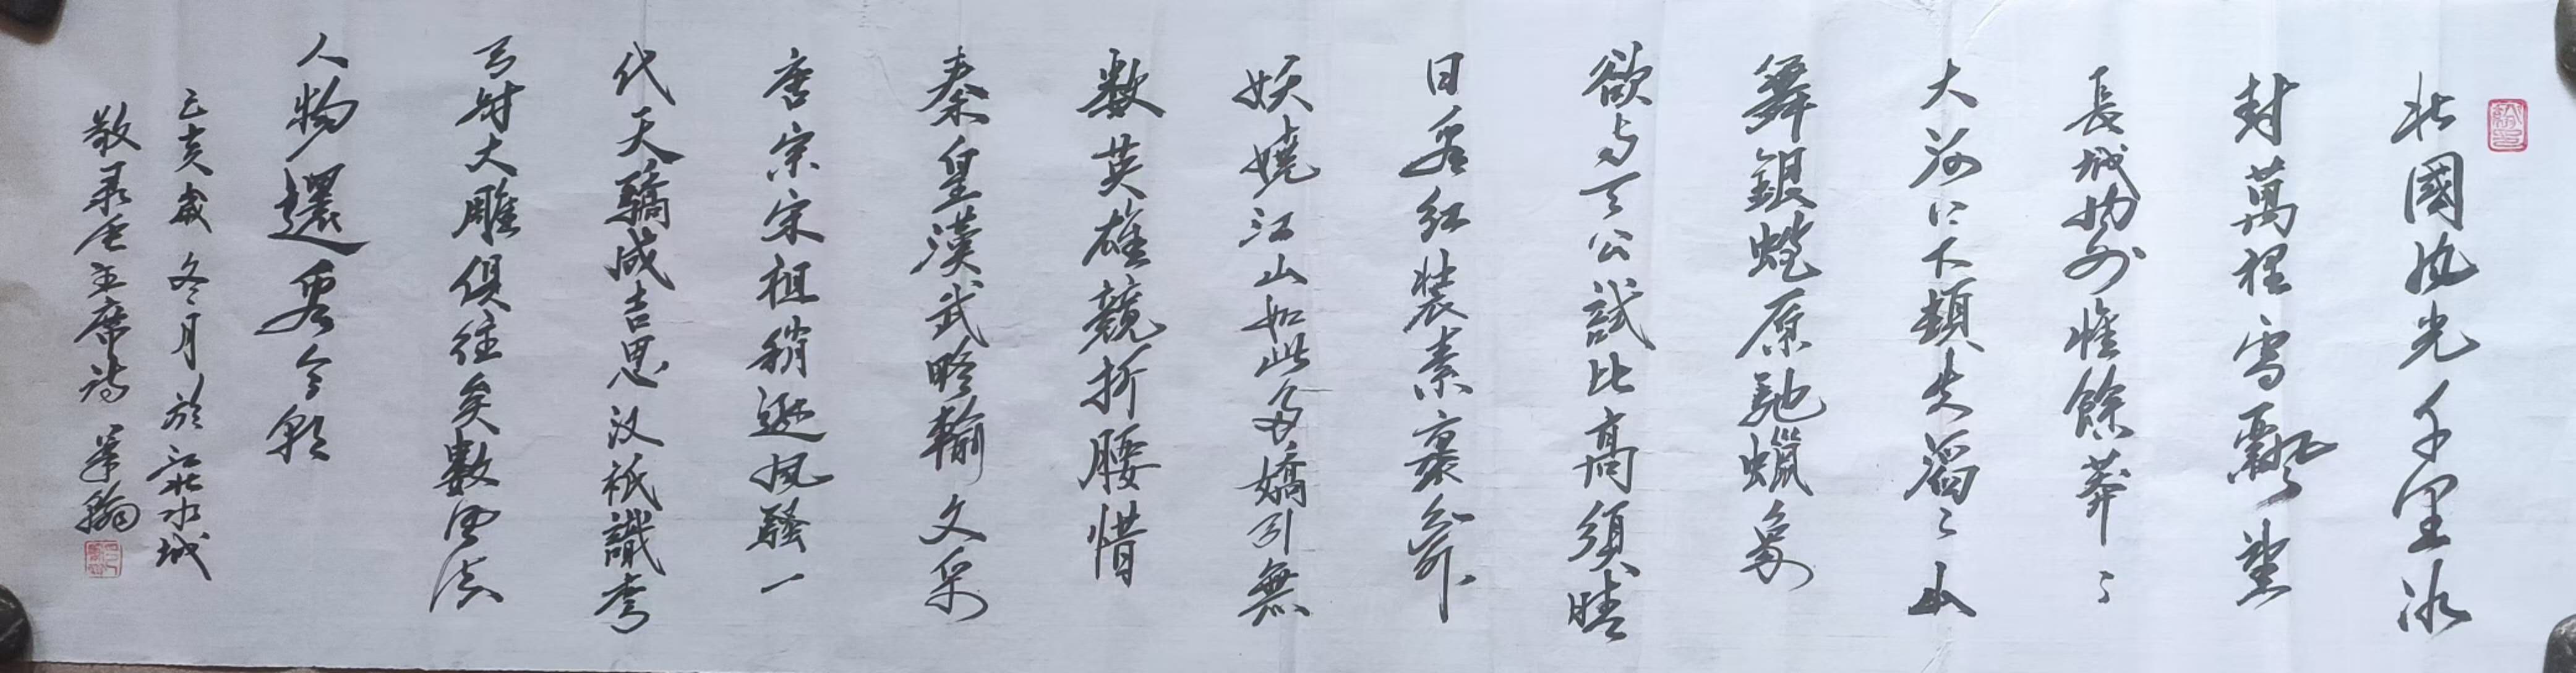 北國風光千里冰
封萬裡雪飄望
長城內外惟餘莽〻
大河上下頓失滔〻山
舞銀蛇原馳蠟象
欲与天公試比高須晴
日看红装素裹分外
妖嬈江山如此多嬌引無
數英雄競折腰惜
秦皇漢武略輸文采
唐宗宋祖稍遜风騷一
代天驕成吉思汉祇識彎
弓射大雕俱往矣數風流
人物還看今朝
己亥歲冬月於江北水城
敬录毛主席诗 笔翰